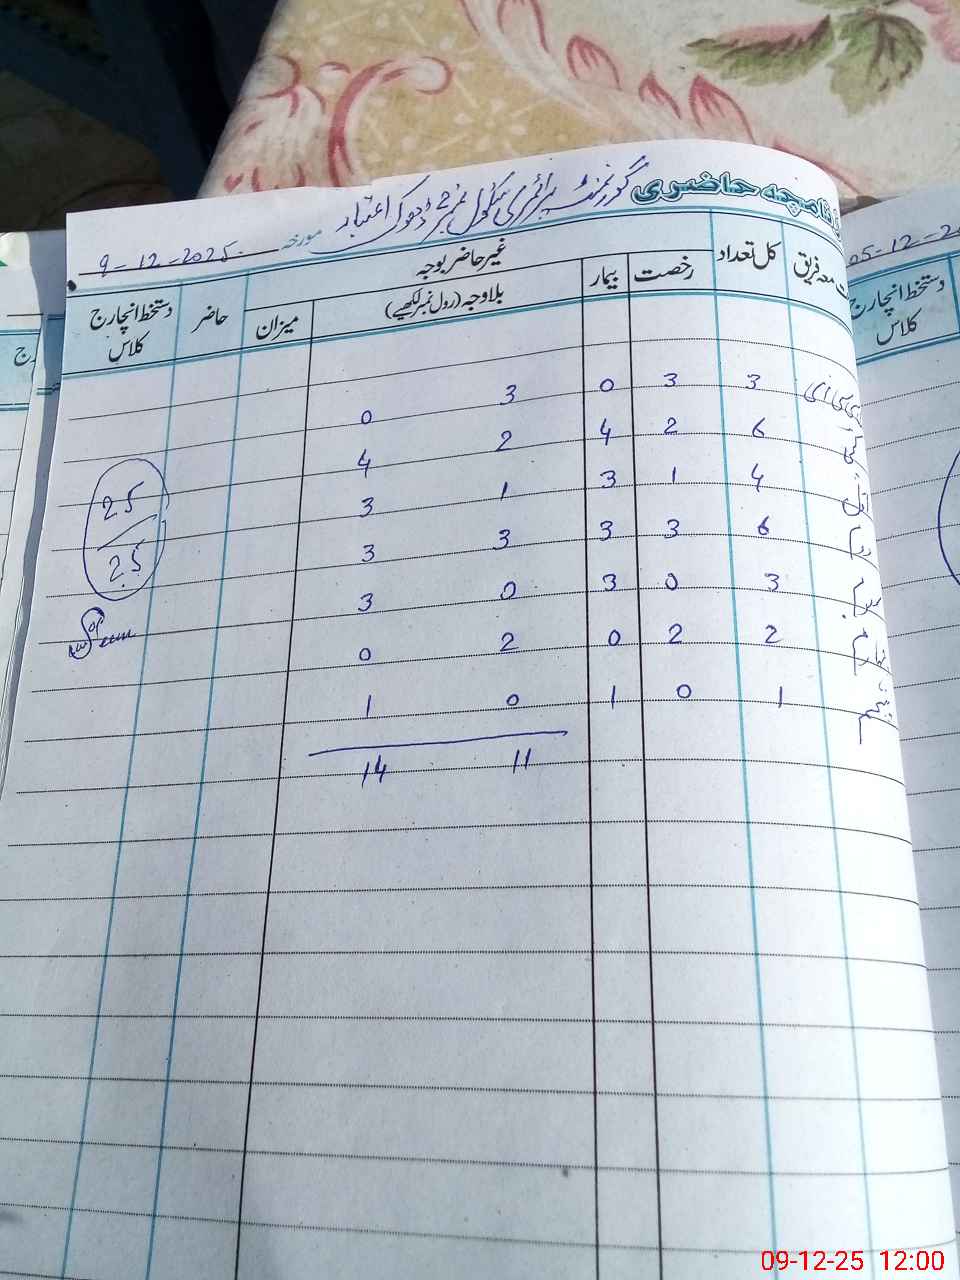 حاضری
گورنمنٹ پرائمری سکول نمبر 2 ڈھوک اعتبار مورخہ 9-12-2025
05-12-20
معہ فریق کل تعداد غیر حاضر بوجہ حاضر دستخط انچارج کلاس
رخصت بیمار بلاوجہ (رول نمبر لکھیے) میزان
دستخط انچارج
کلاس
3 3 0 3 0
6 2 4 2 4
4 1 3 1 3
6 3 3 3 3
3 0 3 0 3
2 2 0 2 0
1 0 1 0 1
11 14
25
25
09-12-25 12:00